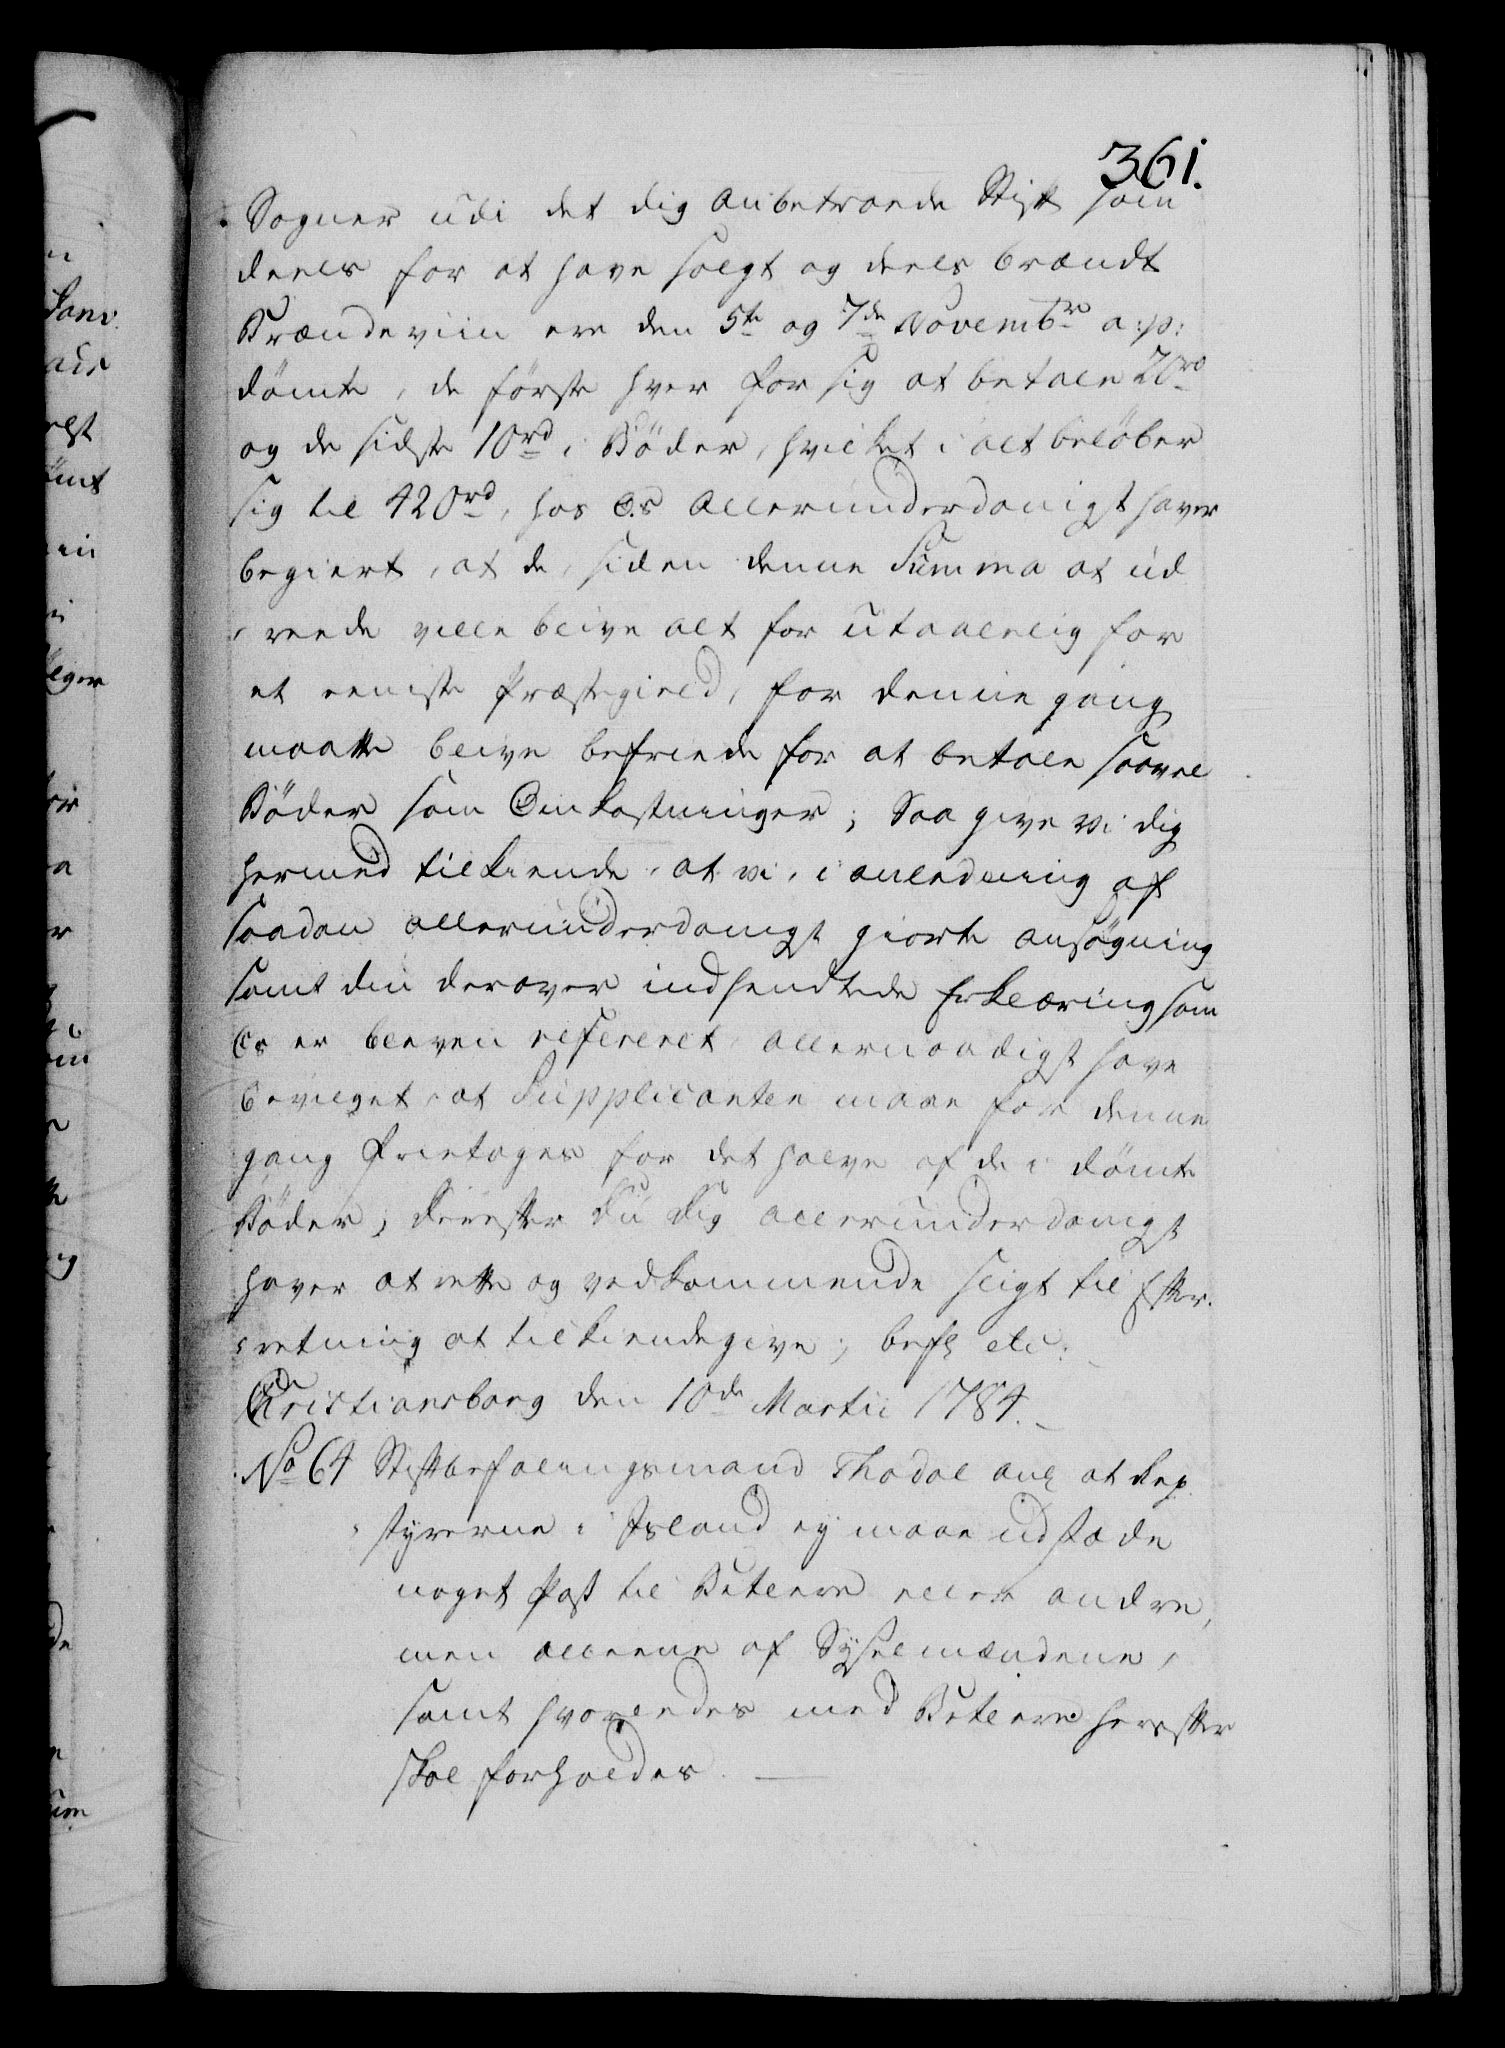 361.
Sogner udi det dig anbetroede Stift som
deels for at have solgt og deels brændt
Brændeviin ere den 5te og 7de Novembr a:p:
dömte, de förste hver for sig at betale 20rd
og de sidste 10rd i Böder, hvilket i alt belöber
sig til 420rd, hos Os allerunderdanigst haver
begiert, at de, siden denne Summa at ud
rede ville blive alt for utaalelig for
et eeniste Præstegield, for denne gang
maatte blive befriede for at betale saavel
Böder som Omkostninger; Saa give vi dig
hermed tilkiende, at vi, i anledning af
saadan allerunderdanigst giorte ansögning
samt din derover indsendtede Erklæring som
Os er bleven refereret allernaadigst have
bevilget, at Supplicanten maae for denne
gang fritages for det halve af de i dömte
Böder; derefter du dig allerunderdanigst
haver at rette og vedkommende sligt til Efter-
retning at tilkiendegive; befl etc:
Christiansborg den 10de Martii 1784.
No 64 Stiftbefalingsmand Thodal anl at Rep
styrerne i Island ey maae udstæde
noget Pass til Betlere eller andre,
men alleene af Sysselmændene,
samt hvorledes med Betlere herefter
skal forholdes.